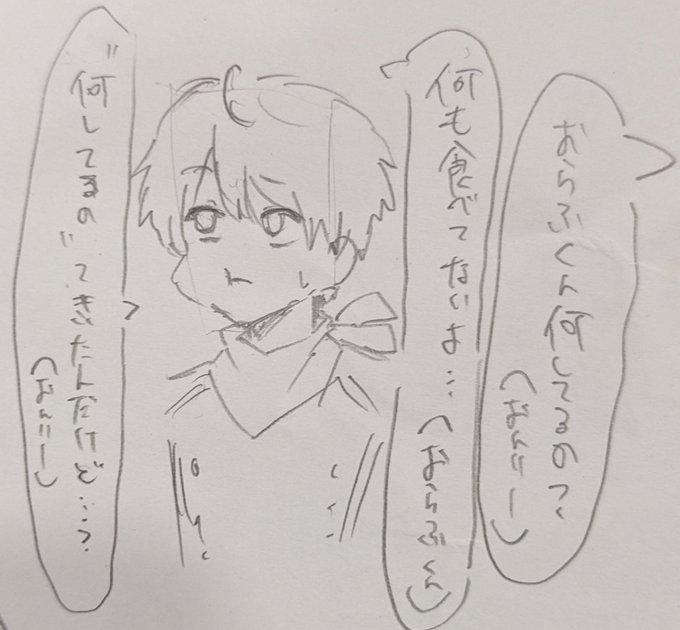 おらふくん何してるの?
(ぼんニー)
何も食べてないよ…(おらふくん)
"何してるの"てきいたんだけど…?
(ぼんニー)